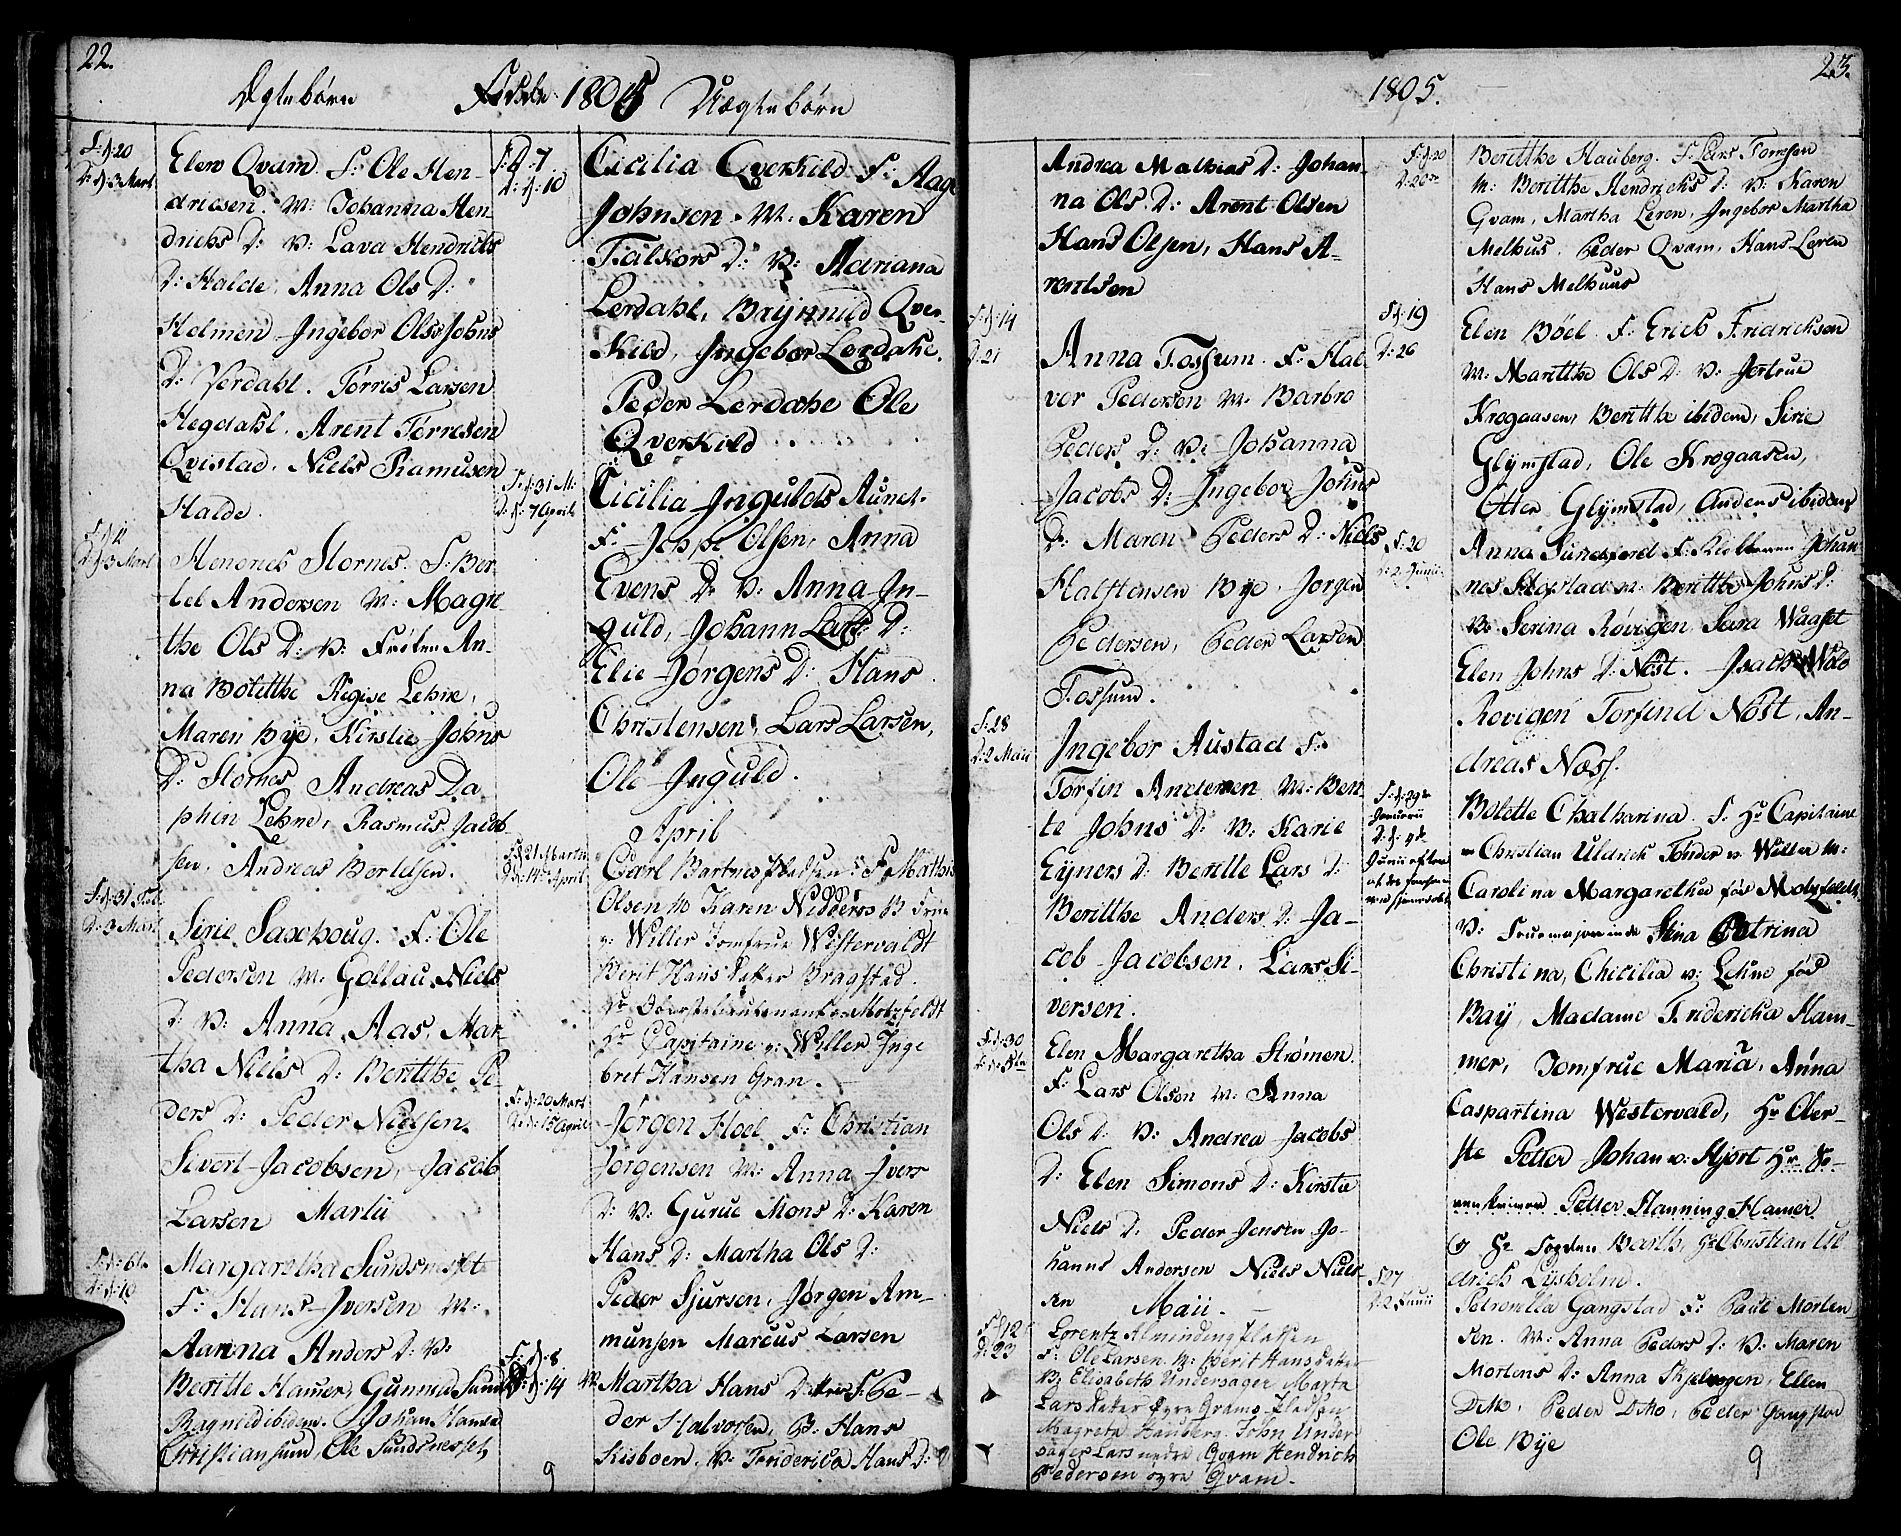 22.
Ægtebørn Fødde 1805 Uægtebørn
F: d: 20
D: d: 3 Mart
Elen Qvam. F: Ole Hen-
dricsen. M: Johanna Hen
dricks D: V: Lava Hendricks
D: Halde, Anna Ols D:
Holmen Ingebor Olss Johns
D: Verdahl. Tørris Larsen
Hegdahl. Arent Tørresen
Qvistad. Niels Rasmusen
Halde.
D: d: 3 Mart
Stornes. F: Ber
tel Andersen M: Magre
the Ols D: V: Frøken An-
na Bolette Regise Lehne,
Maren Bye, Kirstie Johns
D: Stornes Andreas Da
phin Lehne, Rasmus Jacob-
sen, Andreas Bertelsen.
F: d: 31
D: 3 Mart
Sirie Saxhoug. F: Ole
Pedersen M: Gollau Niels
D: V: Anna Aas, Mar-
tha Niels D: Beritthe Pe-
ders D: Peder Nielsen.
Sivert Jacobsen, Jacob
Larsen Martii
F: d: 6te
D: d: 10
Margaretha Sundsneset
F: Hans Iversen M:
Aanna Anders D: V:
Beritte Hamer, Gunnild Sund
Ragnild ibidem. Johan Hamer
Christiansund, Ole Sundsnesset
F: D: 7
D: d: 10
Cicilia Qverkild F: Aage
Johnsen. M: Karen
Falkors D: V: Adriana
Lerdahl, Brynnild Qver-
kild, Ingebor Lerdahe.
Peder Lerdahe Ole
Qverkild
F: d: 31 M:
D: d: 7 April
Cicilia Inguldds Aunet.
F: Jeppe Olsen, Anna
Evens D: V: Anna In-
guld, Johann Lars D:
Elie Jørgens D: Hans
Christensen, Lars Larsen,
Ole Inguld.
April
F: d: 21 Martii
D: d: 14 April
Carl Bartnes Pladsen F: Mathis
Olsen M Karen Nidders B Frue
v: Willer Jomfrue Westervaldt
Berit Hans dater Bragstad.
Hr Oberstelieutenant von Motzfeldt
Hr Capitaine v: Willer Inge
bret Hansen Gran.
F: d: 20 Mart
D: d: 15 April
Jørgen Hoel F: Christian
Jørgensen M: Anna Ivers
D: V: Gurue Mons D: Karen
Hans D: Martha Ols D:
Peder Sjursen, Jørgen Am-
munsen Marcus Larsen
F: d: 8
D: d: 14
Martha Hans D: F: Pe-
der Halvorsen, B: Hans
Kisboen. V: Friderica Hans D:
9
1805.
23.
Andrea Mathias D: Johan-
na Ols D: Arent Olsen
Hans Olsen, Hans A-
rentsen
F: d: 14
D: 21
Anna Fossum. F: Hal
vor Pedersen M: Barbro
Peders D: V: Johanna
Jacobs D: Ingebor Johns
D: Maren Peders D: Niels
Halstensen Bye, Jørgen
Pedersen, Peder Larsen
Fossum.
F: 28
D: 2 Maii
Ingebor Austad F:
Torfin Andersen M: Ben
te Johns D: V: Karie
Eyners D: Beritte Lars D:
Beritthe Anders D: Ja-
cob Jacobsen. Lars Si-
versen.
F: d: 30
Elen Margaretha Strømen.
F: Lars Olsen M: Anna
Ols D: V: Andrea Jacobs
D: Elen Simons D: Kirstie
Niels D: Peder Jensen Jo-
hanns Andersen Niels Niels-
sen Maii.
F: d: 12
D: 23
Lorentz Almindingspladsen
F: Ole Larsen. M: Berit Hans dater
B: Elisabeth Undersager Marta
Lars dater øyre Grams Pladsen
Magreta Hauberg. John Under
sager Lars nedre Qvam Hendrich
Pedersen øyre Qvam.
F: d: 20
D: 26
Beritthe Hauberg. F: Lars Torresen
M: Beritthe Hendricks D: V: Karen
Qvam, Martha Leren, Ingebor Martha
Melhus. Peder Qvam, Hans Leren
Hans Melhuus
F: d: 19
D: 26
Elen Böel. F: Erich Fridricksen
M: Maritthe Ols D: V: Jertrue
Krogaasen, Beritthe ibidem, Sirie
Glymstad, Ole Krogaasen,
Otter Glymstad, Anders ibidem
F: 20
D: 2 Junii
Anna Sundsfjord F: Johan-
nes Slepstad M: Beritthe Johns D:
B: Serina Røvigen Sara Waaset
Elen Johns D: Nøst. Isach Wold
Rovigen Torfind Nöst, An-
dreas Næss.
F: d: 29de
Januarii
D: d: 9de
Junii
Bolette Chatharina. F: Hr Capitaine
v: Christian Uldrich Tønder v: Willer M:
Carolina Margarethe fød Motzfeldt
V: Frue majorinde Stina Petrina
Christina, Chicilia v: Lehne fød
Bay, Madame Fridericka Ham-
mer, Jomfrue Maria, Anna
Caspartina Westervald, Hr Ober-
ste Petter Johan v: Hjort Hr So-
renskriver Petter Hanning Hamer
og Hr Fogden Barth, Hr Christian Ul
drich Lysholm.
F: 27
D: 2 Junii
Petronella Gangstad F: Paul Morten
sen. M: Anna Peders D: V: Maren
Mortens D: Anna Skjelvogen, Ellen
Ditto. Peder Ditto, Peder Gangstad
Ole Bye
9